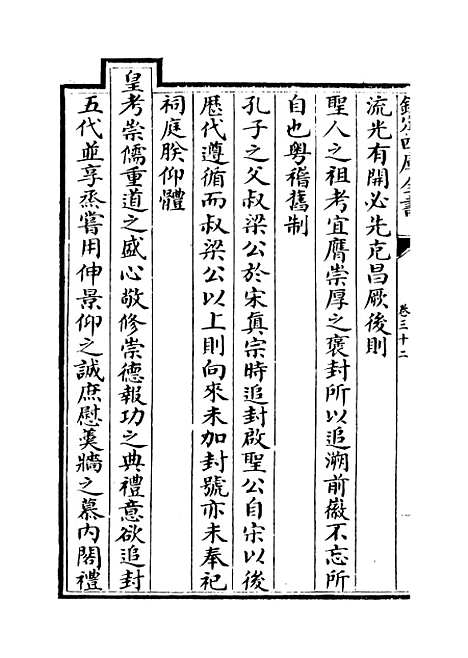 欽定四庫全書
卷三十二
流光有開必先克昌厥後則
聖人之祖考宜膺崇厚之褒封所以追溯前徽不忘所
自也粵稽舊制
孔子之父叔梁公於宋真宗時追封啟聖公自宋以後
歴代遵循而叔梁公以上則向來未加封號亦未奉祀
祠庭朕仰體
皇考崇儒重道之盛心敬修崇德報功之典禮意欲追封
五代並享烝嘗用伸景仰之誠庶慰羮牆之慕内閣禮